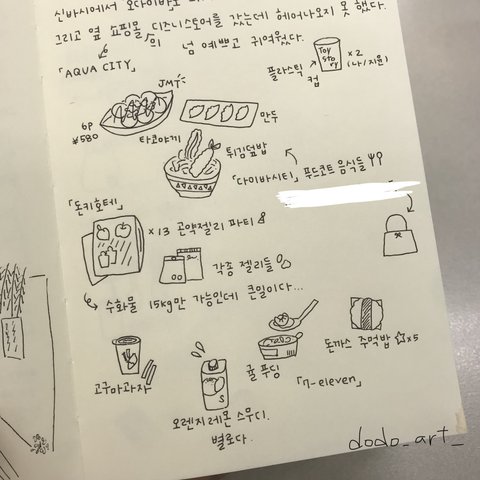 신바시에서 오다이바로
그리고 옆 쇼핑몰의 디즈니스토어를 갔는데 헤어나오지 못했다.
넘 예쁘고 귀여웠다.
「AQUA CITY」
TOY STORY
×2
(나/지윤)
플라스틱 컵
JMT
6P
¥580
타코야끼
만두
튀김덮밥
「다이바시티」 푸드코트 음식들
「돈키호테」
×13 곤약젤리 파티
각종 젤리들
수화물 15kg만 가능인데 큰일이다...
고구마과자
S
오렌지레몬 스무디.
별로다.
귤 푸딩
「7-eleven」
돈까스 주먹밥 ☆×5
dodo_art_